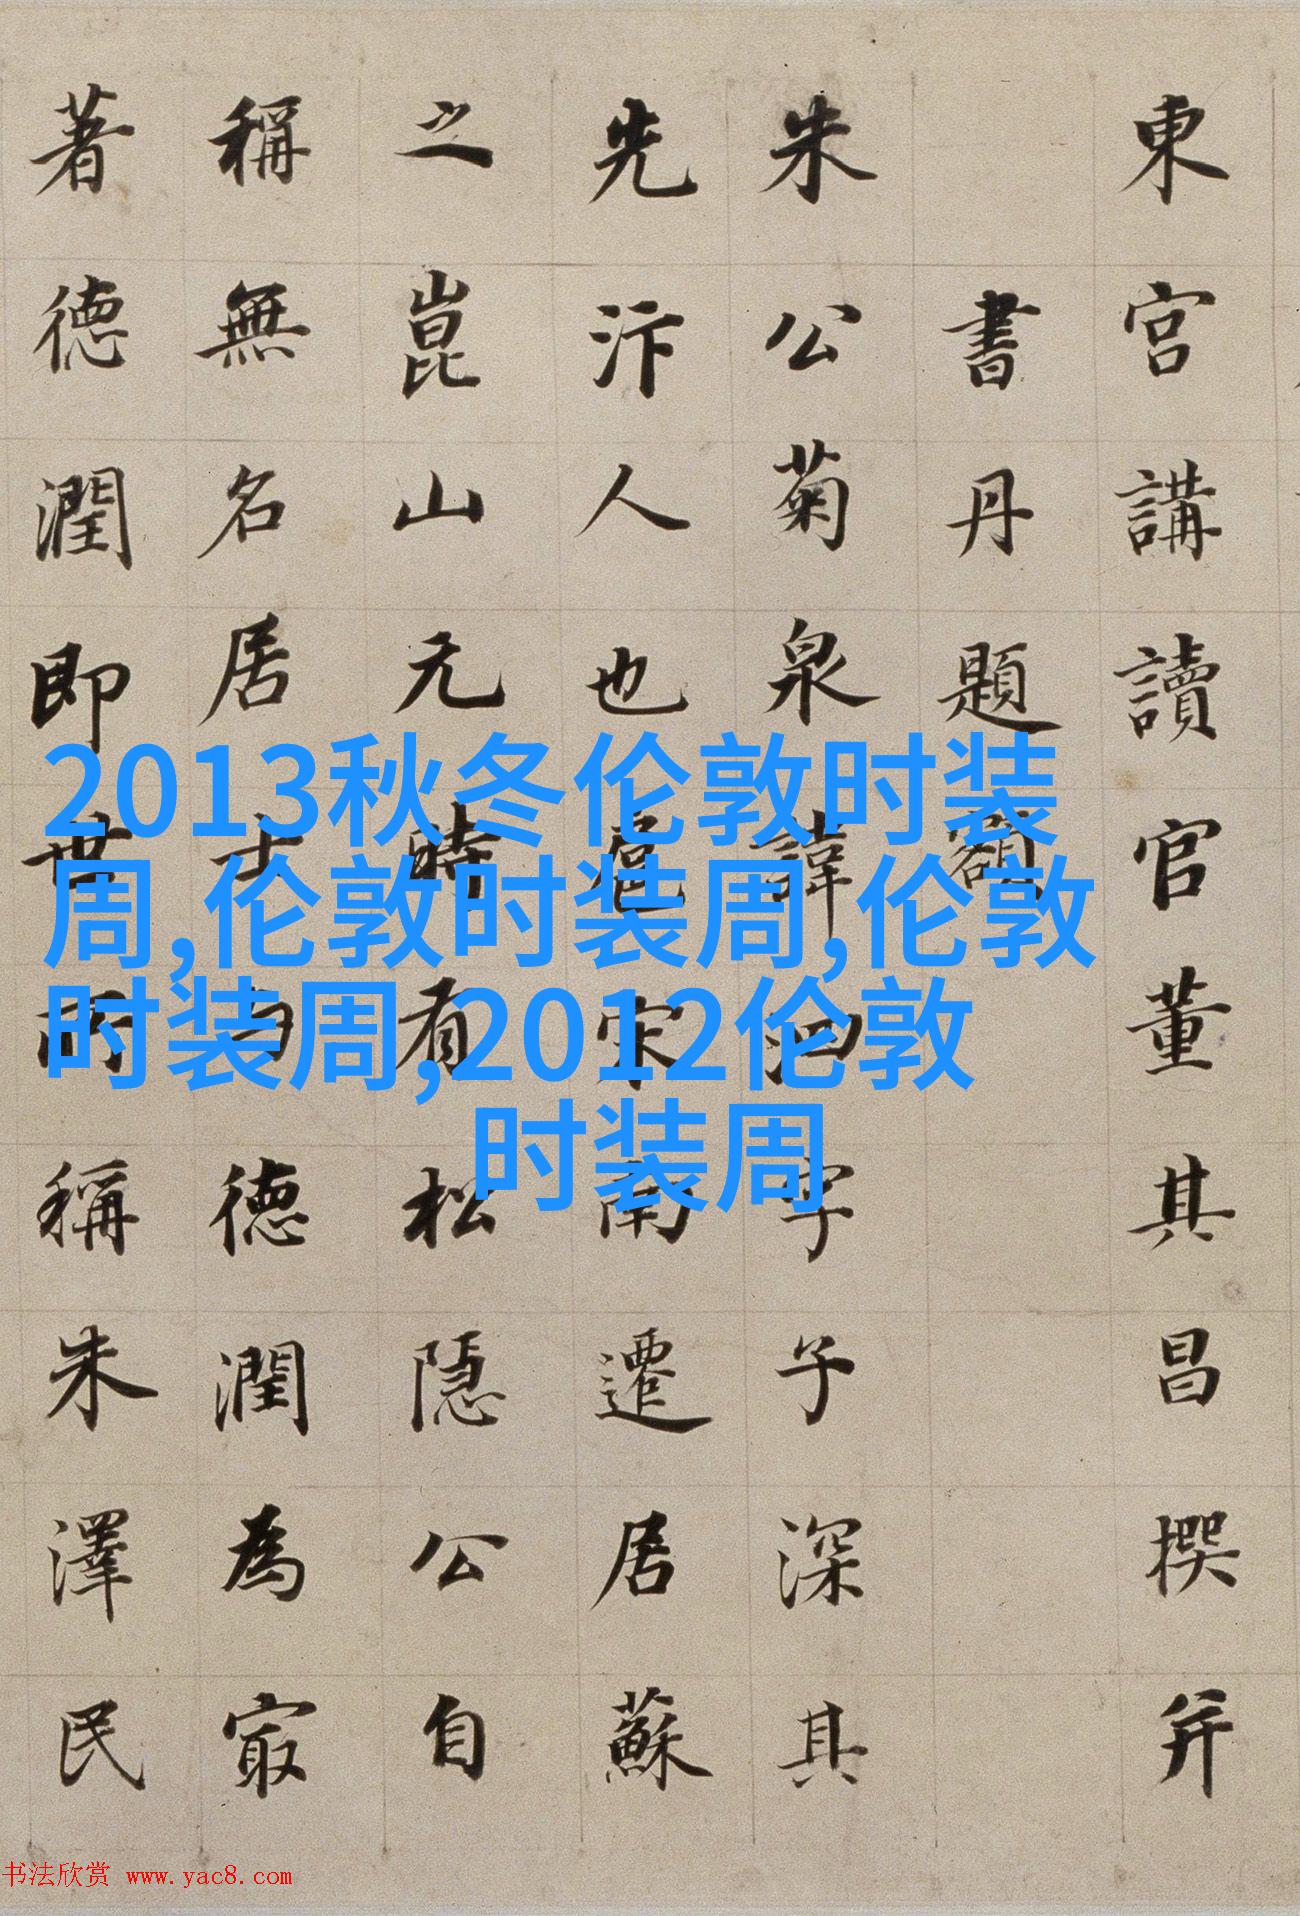 東宮講讀官董其昌撰并
書丹題額
朱公菊泉諱泗字子深其
先汴人也扈宋南遷居蘇
之崑山元時有松隱公自
稱無名居士与德潤為㝡
著德潤即世所稱朱澤民
2013秋冬伦敦时装
周,伦敦时装周,伦敦
时装周,2012伦敦
时装周
书法欣赏 www.yac8.com